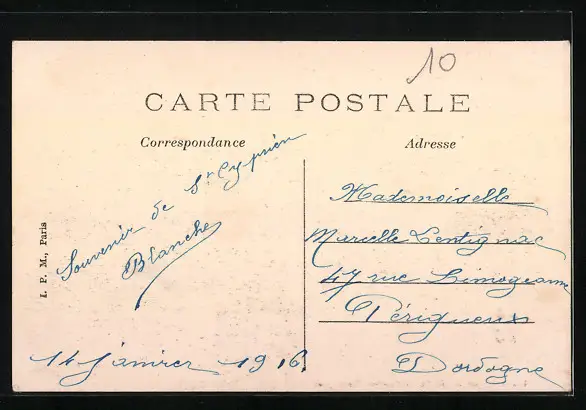 10
CARTE POSTALE
Correspondance
Adresse
Souvenir de St Cyprien
Blanche
14 Janvier 1916
I. P. M., Paris
Mademoiselle
Marcelle Lentignac
47 rue Limogeanne
Périgueux
Dordogne